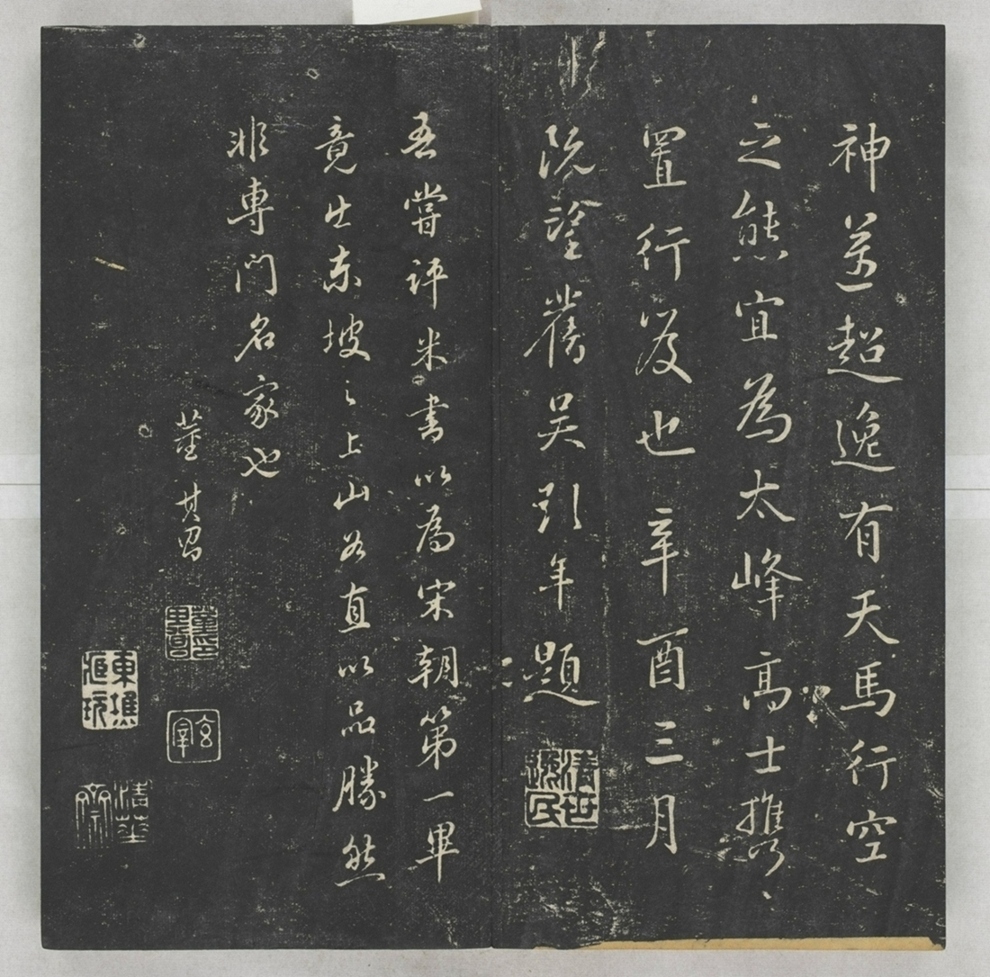 神邁超逸有天馬行空
之態宜為太峰高士攜
置行笈也辛酉三月
既望舊吴引年題
清世逸民
吾嘗評米書以為宋朝第一畢
竟出東坡之上山谷直以品勝然
非專門名家也
董其昌
玄宰
清華齋